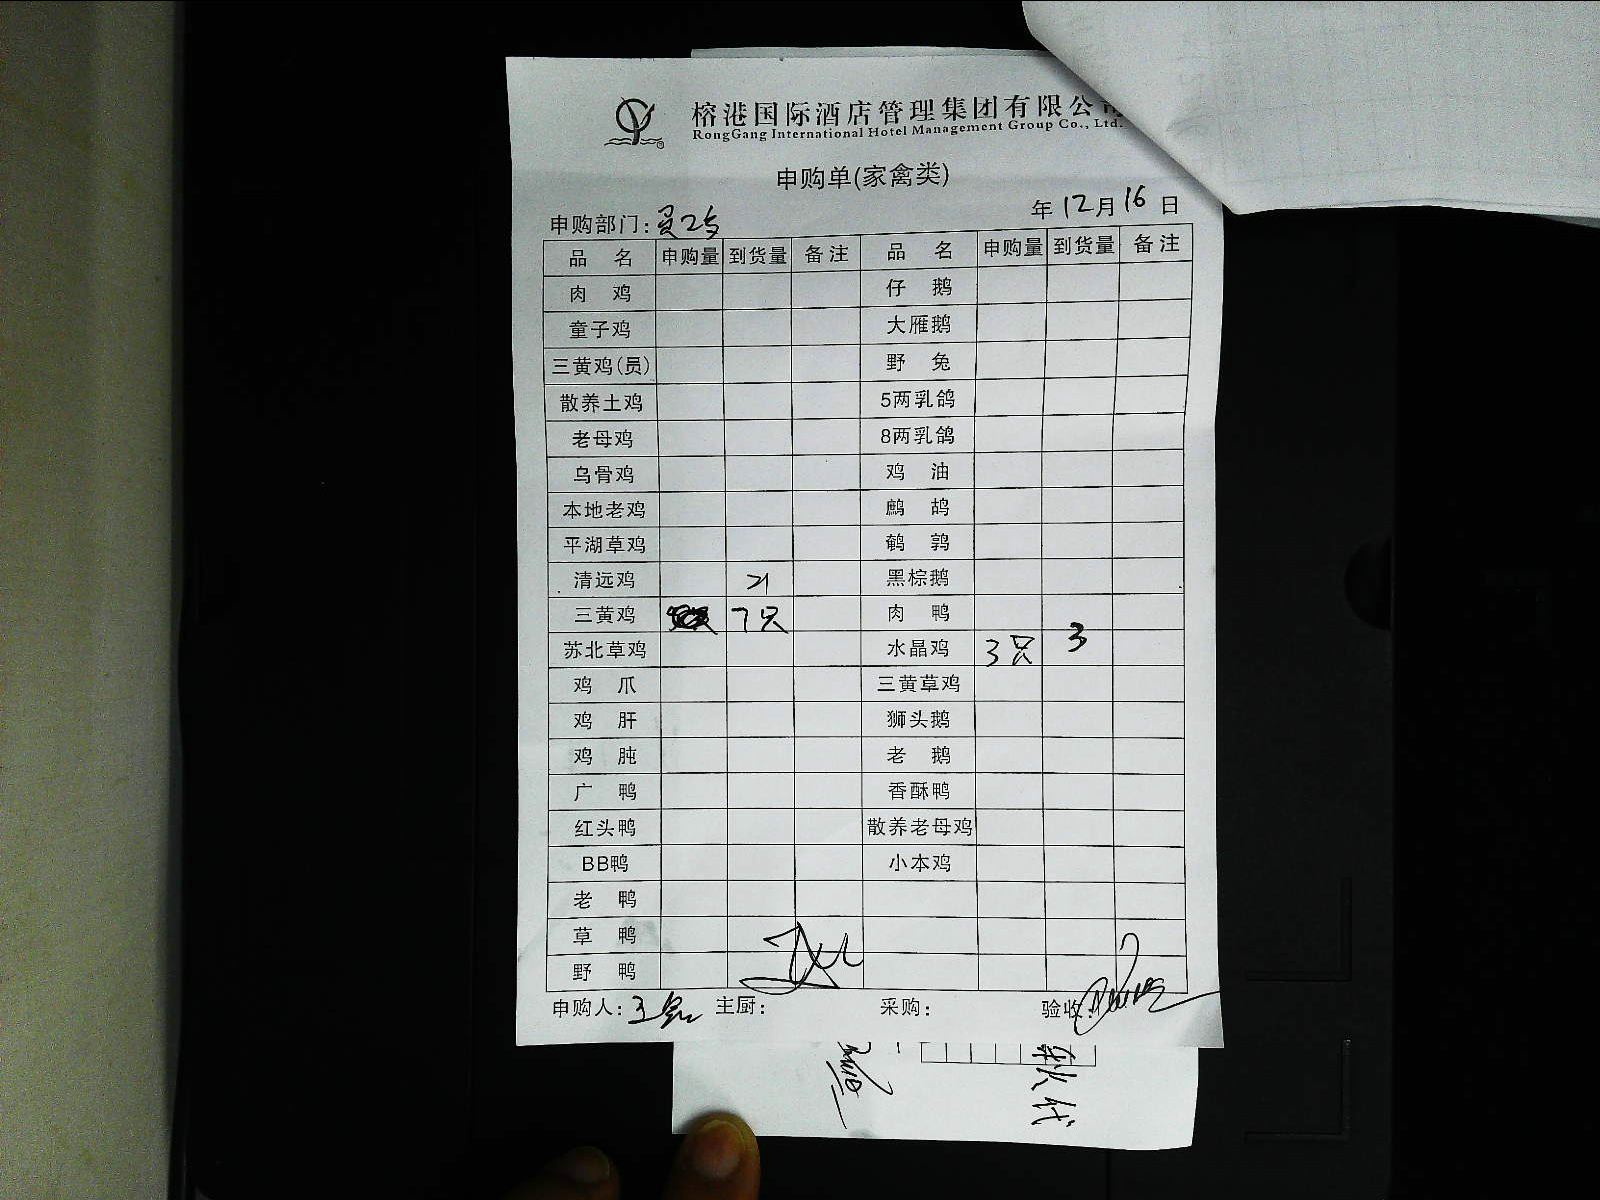 榕港国际酒店管理集团有限公司
RongGang International Hotel Management Group Co., Ltd.
申购单(家禽类)
申购部门: 年12月16日
品名 申购量 到货量 备注 品名 申购量 到货量 备注
肉鸡 仔鹅
童子鸡 大雁鹅
三黄鸡(员) 野兔
散养土鸡 5两乳鸽
老母鸡 8两乳鸽
乌骨鸡 鸡油
本地老鸡 鹧鸪
平湖草鸡 鹌鹑
清远鸡 黑棕鹅
三黄鸡 7只 肉鸭
苏北草鸡 水晶鸡 3只 3
鸡爪 三黄草鸡
鸡肝 狮头鹅
鸡肫 老鹅
广鸭 香酥鸭
红头鸭 散养老母鸡
BB鸭 小本鸡
老鸭
草鸭
野鸭
申购人: 主厨: 采购: 验收: